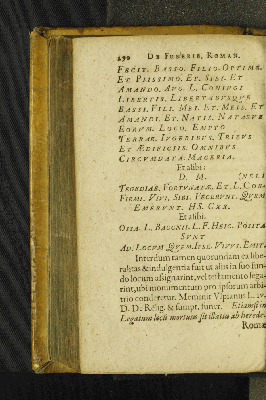 290 DE FVNERIB. ROMAN.
FECIT. BASSO. FILIO. OPTIMO.
ET. PIISSIMO. ET. SIBI. ET
AMANDO. AVG. L. CONIVGI
LIBERTIS. LIBERTABVSQVE
BASSI. FILI. MEI. ET. MEIS. ET
AMANDI. ET. NATIS. NATABVS
EORVM. LOCO. EMPTO
TERRAE. IVGERIBVS. TRIBVS
ET ÆDIFICIIS. OMNIBVS
CIRCVMDATA. MACERIA.
Et alibi:
D. M.
FIRMI. VIVI, SIBI. FECERVNT. QVEM
EMERVNT. HS. CXX.
Et alibi.
OSSA. L. BAGENII. L. F. HEIC. POSITA
SVNT
AD. LOCVM QVEM. IPSE. VIVVS. EMIT.
Interdum tamen quorundam ea libe-
ralitas & indulgentia fuit ut aliis in suo fun-
do locum assignarint, vel testamento lega-
rint, ubi monumentum pro ipsorum arbi-
trio conderetur. Meminit Vlpianus L.
D. De Relig. & sumpt. funer. Etiamsi in
Legatum loci mortuus sit illatus ab herede
Roma